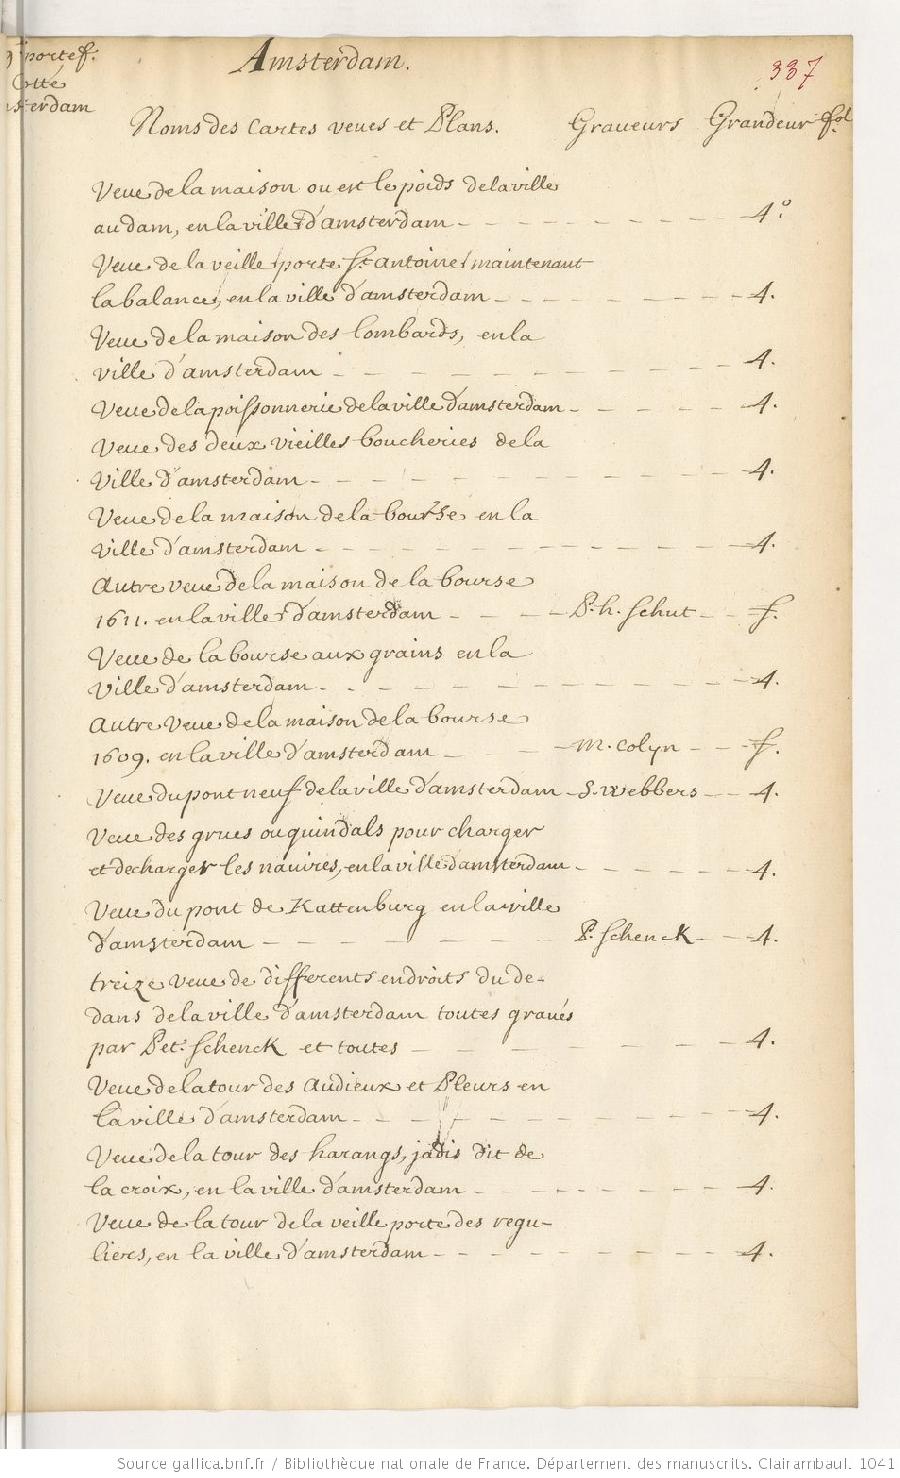 portef.
Cotté
Amsterdam.
337
Noms des Cartes veues et Plans. Graueurs Grandeur fol.
Veue de la maison ou est le poids de la ville
au dam, en la ville d'amsterdam 4.°
Veue de la veille porte St. antoine maintenant
la balance, en la ville d'amsterdam 4.
Veue de la maison des Lombards, en la
ville d'amsterdam 4.
Veue de la poissonnerie de la ville d'amsterdam 4.
Veue des deux vieilles boucheries de la
ville d'amsterdam 4.
Veue de la maison de la bourse en la
ville d'amsterdam 4.
Autre veue de la maison de la bourse
1611. en la ville d'amsterdam P. h. Schut f.
Veue de la bourse aux grains en la
ville d'amsterdam 4.
Autre veue de la maison de la bourse
1609. en la ville d'amsterdam m. Colyn f.
Veue du pont neuf de la ville d'amsterdam S. webbers 4.
Veue des grues ou guindals pour charger
et decharger les nauires, en la ville d'amsterdam 4.
Veue du pont de Kattenburg en la ville
d'amsterdam P. Schenck 4.
treize veue de differents endroits du de-
dans de la ville d'amsterdam toutes graués
par Pet. Schenck et toutes 4.
Veue de la tour des Audieux et Pleurs en
la ville d'amsterdam 4.
Veue de la tour des harangs, jadis dit de
la croix, en la ville d'amsterdam 4.
Veue de la tour de la veille porte des regu-
lieres, en la ville d'amsterdam 4.
Source gallica.bnf.fr / Bibliothèque nationale de France. Département des manuscrits. Clairambault 1041